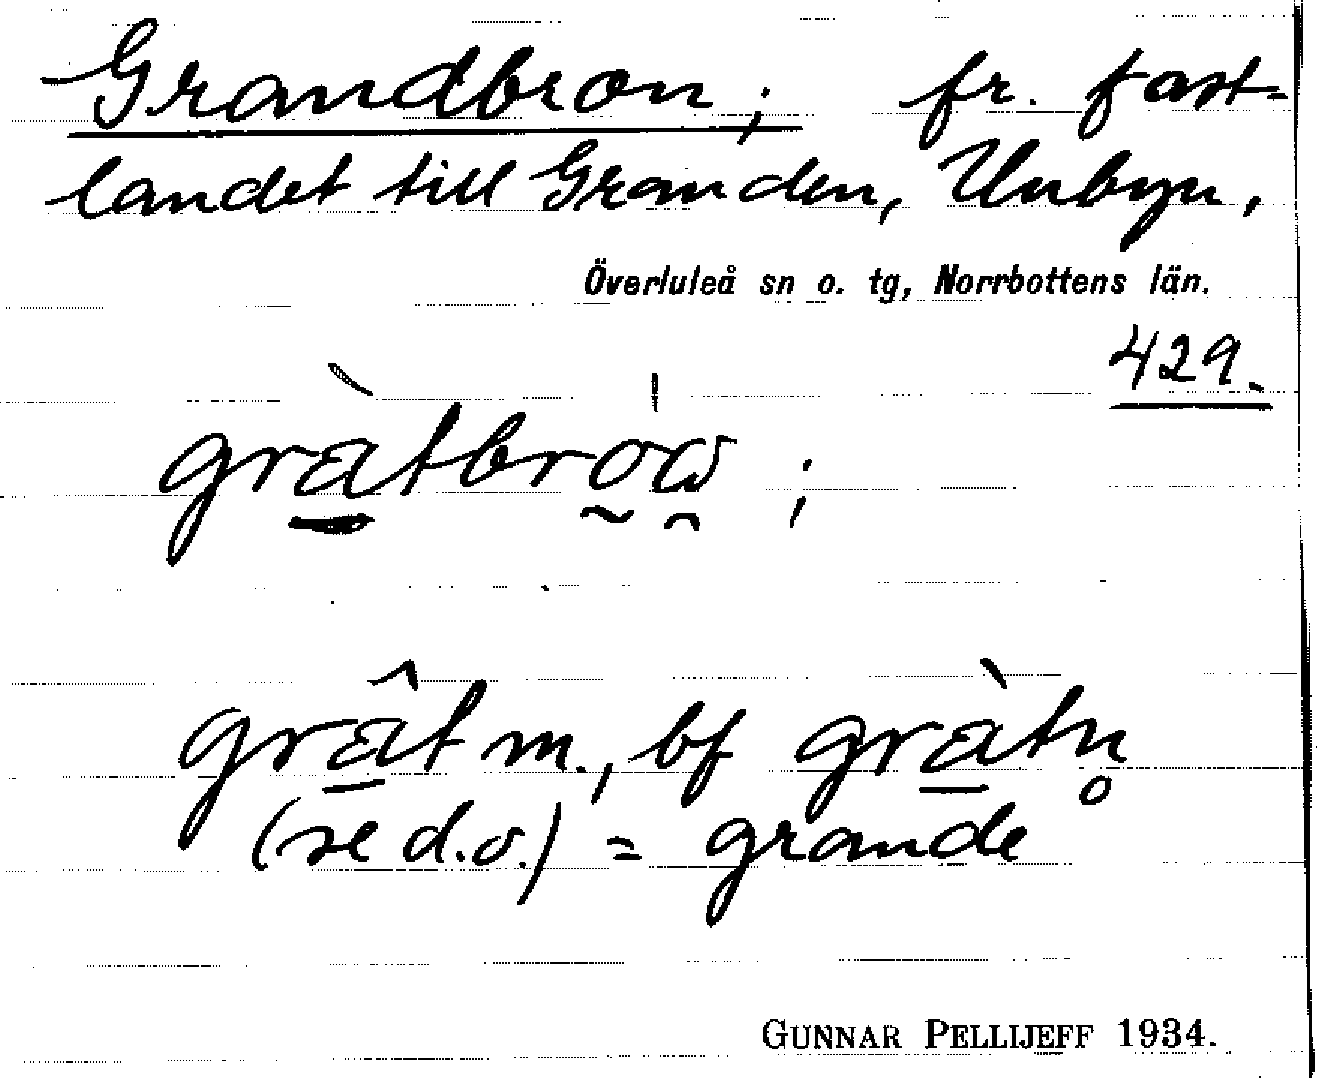 Grandbron; fr. fast-
landet till Granden, Unbyn,
Överluleå sn o. tg, Norrbottens län.
429.
gràtbrow;
grât m., bf gràtn̥
(se d.o.) = grande
GUNNAR PELLIJEFF 1934.